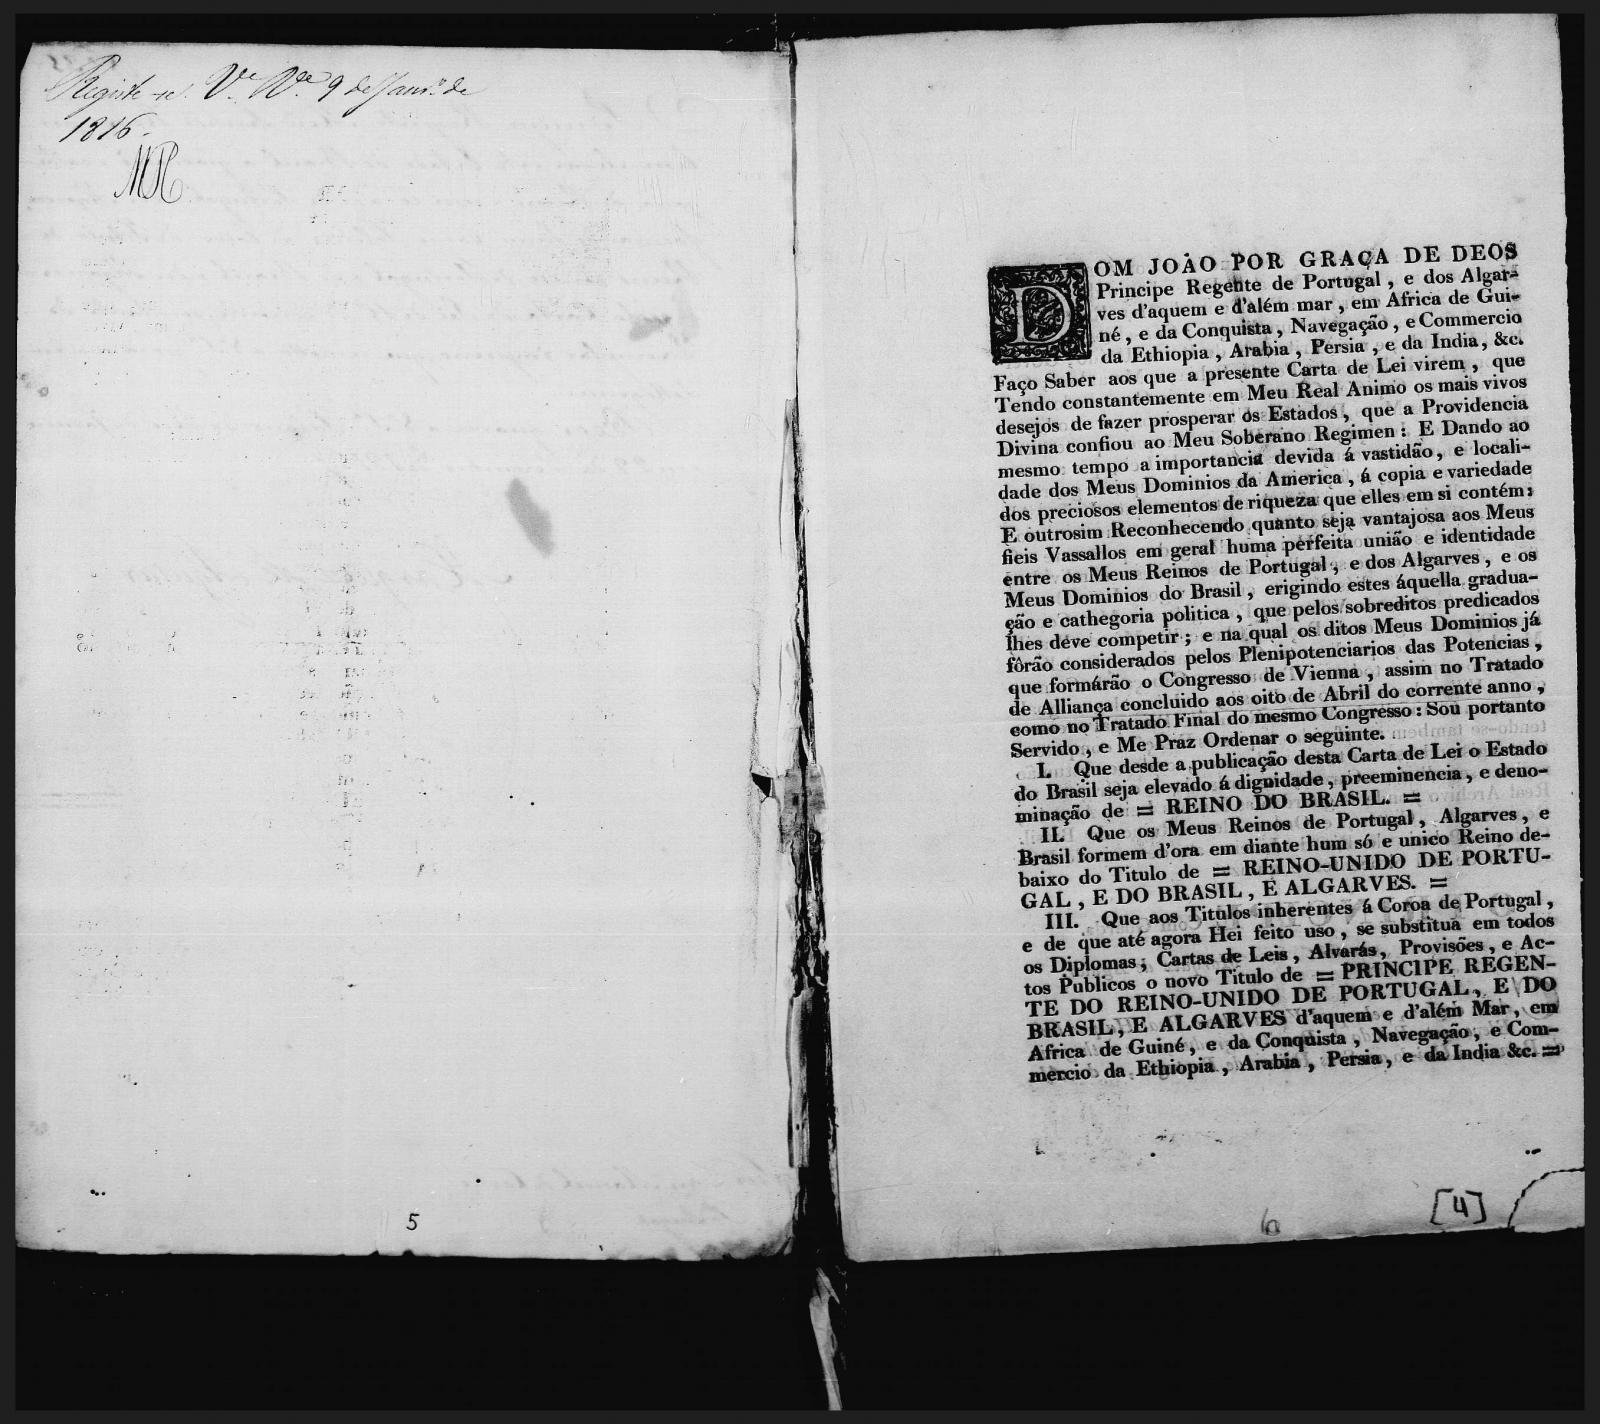 Registe-se. Va. Va. 9 de Janr.o de
1816.
5
DOM JOÃO POR GRAÇA DE DEOS
Principe Regente de Portugal, e dos Algar-
ves d'aquem e d'além mar, em Africa de Gui-
né, e da Conquista, Navegação, e Commercio
da Ethiopia, Arabia, Persia, e da India, &c.
Faço Saber aos que a presente Carta de Lei virem, que
Tendo constantemente em Meu Real Animo os mais vivos
desejos de fazer prosperar os Estados, que a Providencia
Divina confiou ao Meu Soberano Regimen: E Dando ao
mesmo tempo a importancia devida á vastidão, e locali-
dade dos Meus Dominios da America, á copia e variedade
dos preciosos elementos de riqueza que elles em si contém:
E outrosim Reconhecendo quanto seja vantajosa aos Meus
fieis Vassallos em geral huma perfeita união e identidade
entre os Meus Reinos de Portugal, e dos Algarves, e os
Meus Dominios do Brasil, erigindo estes áquella gradua-
ção e cathegoria politica, que pelos sobreditos predicados
lhes deve competir; e na qual os ditos Meus Dominios já
fôrão considerados pelos Plenipotenciarios das Potencias,
que formárão o Congresso de Vienna, assim no Tratado
de Alliança concluido aos oito de Abril do corrente anno,
como no Tratado Final do mesmo Congresso: Sou portanto
Servido, e Me Praz Ordenar o seguinte.
I. Que desde a publicação desta Carta de Lei o Estado
do Brasil seja elevado á dignidade, preeminencia, e deno-
minação de = REINO DO BRASIL. =
II. Que os Meus Reinos de Portugal, Algarves, e
Brasil formem d'ora em diante hum só e unico Reino de-
baixo do Titulo de = REINO-UNIDO DE PORTU-
GAL, E DO BRASIL, E ALGARVES. =
III. Que aos Titulos inherentes á Coroa de Portugal,
e de que até agora Hei feito uso, se substitua em todos
os Diplomas, Cartas de Leis, Alvarás, Provisões, e Ac-
tos Publicos o novo Titulo de = PRINCIPE REGEN-
TE DO REINO-UNIDO DE PORTUGAL, E DO
BRASIL, E ALGARVES d'aquem e d'além Mar, em
Africa de Guiné, e da Conquista, Navegação, e Com-
mercio da Ethiopia, Arabia, Persia, e da India &c. =
6
[4]